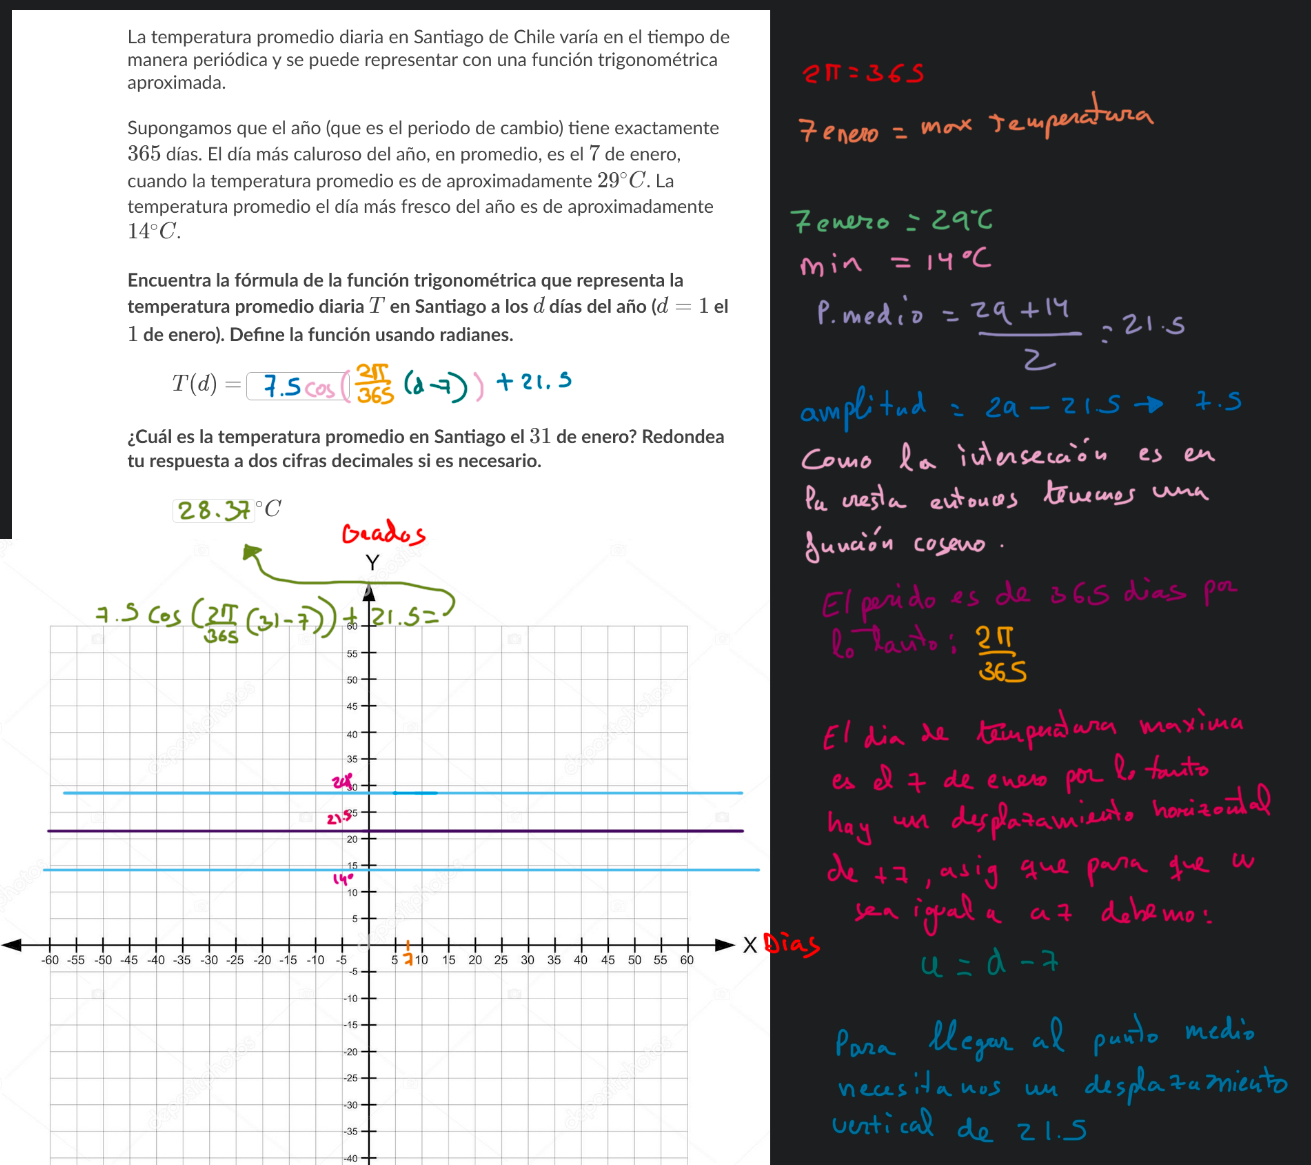 La temperatura promedio diaria en Santiago de Chile varía en el tiempo de
manera periódica y se puede representar con una función trigonométrica
aproximada.
Supongamos que el año (que es el periodo de cambio) tiene exactamente
365 días. El día más caluroso del año, en promedio, es el 7 de enero,
cuando la temperatura promedio es de aproximadamente 29°C. La
temperatura promedio el día más fresco del año es de aproximadamente
14°C.
Encuentra la fórmula de la función trigonométrica que representa la
temperatura promedio diaria T en Santiago a los d días del año (d = 1 el
1 de enero). Define la función usando radianes.
T(d) = 7.5 cos(2π/365 (d-7)) + 21.5
¿Cuál es la temperatura promedio en Santiago el 31 de enero? Redondea
tu respuesta a dos cifras decimales si es necesario.
28.37 °C
Grados
Y
7.5 cos(2π/365 (31-7)) + 21.5 =
60
55
50
45
40
35
29°
30
21.5
25
20
15
14°
10
5
X Dias
-60 -55 -50 -45 -40 -35 -30 -25 -20 -15 -10 -5 5 7 10 15 20 25 30 35 40 45 50 55 60
-5
-10
-15
-20
-25
-30
-35
-40
2π = 365
7 enero = max temperatura
7 enero = 29°C
min = 14°C
P. medio = 29+14/2 = 21.5
amplitud = 29 - 21.5 → 7.5
Como la intersección es en
la cresta entonces tenemos una
función coseno.
El perido es de 365 dias por
lo tanto: 2π/365
El dia de temperatura maxima
es el 7 de enero por lo tanto
hay un desplazamiento horizontal
de +7, asig que para que u
sea igual a a 7 debemo:
u = d - 7
Para llegar al punto medio
necesitanos un desplazamiento
vertical de 21.5